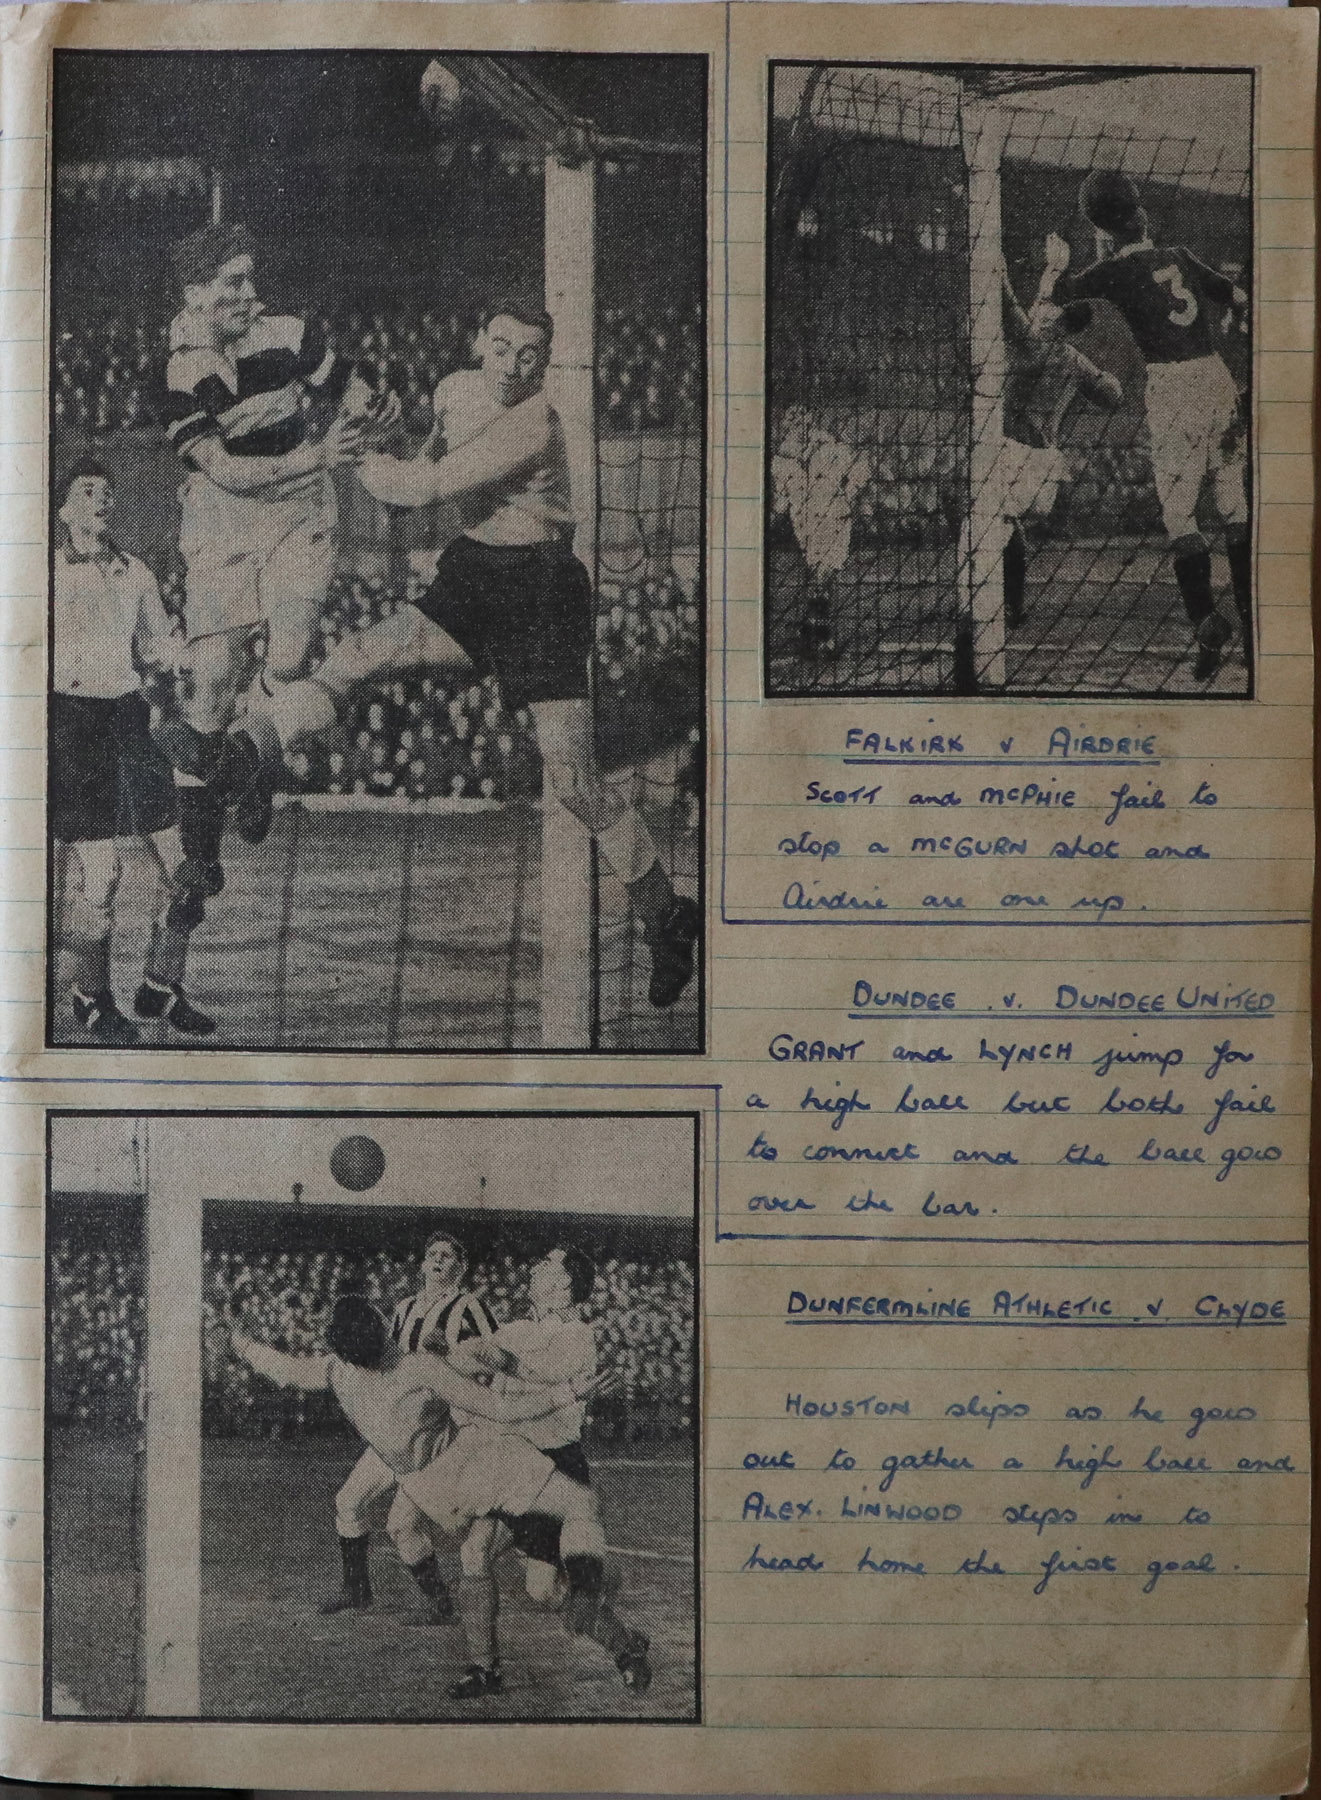 3
FALKIRK v AIRDRIE
SCOTT and McPHIE fail to
stop a McGURN shot and
Airdrie are one up.
DUNDEE . v. DUNDEE UNITED
GRANT and LYNCH jump for
a high ball but both fail
to connect and the ball goes
over the bar.
DUNFERMLINE ATHLETIC . v CLYDE
HOUSTON slips as he goes
out to gather a high ball and
ALEX. LINWOOD steps in to
head home the first goal.